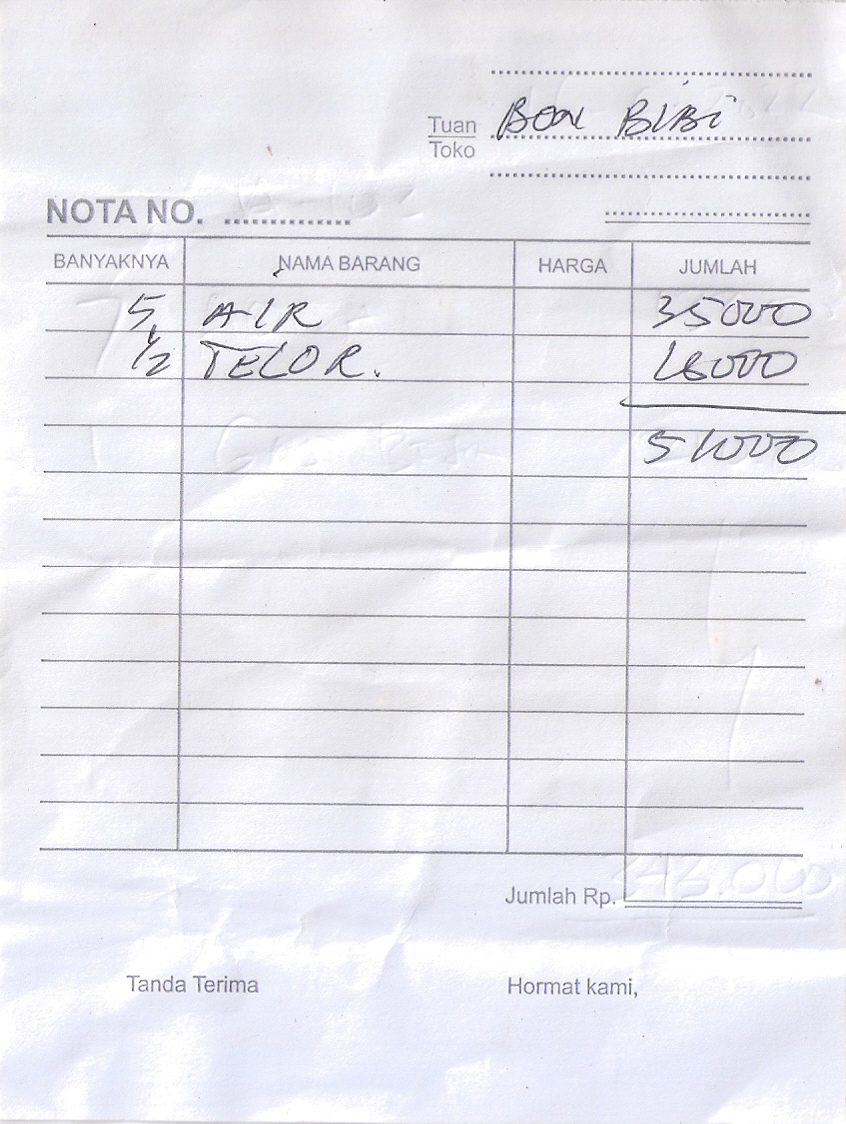 Tuan
Toko
BON BIBI
NOTA NO. ................
BANYAKNYA NAMA BARANG HARGA JUMLAH
5 AIR 35000
1/2 TELOR. 16000
51000
Jumlah Rp.
Tanda Terima Hormat kami,